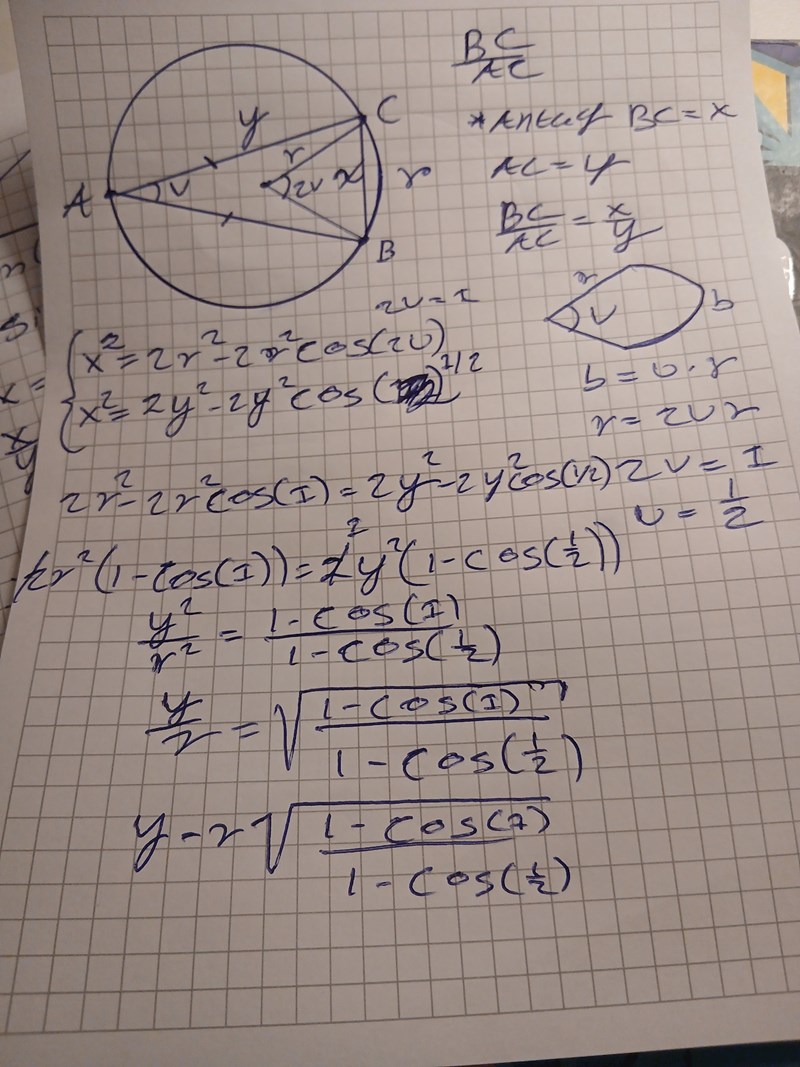 BC/AC
*Antag BC = x
AC = y
BC/AC = x/y
y
C
r
A
v
2v
x
r
B
2v = 1
r
v
b
b = v · r
r = 2vr
2v = 1
v = 1/2
x² = 2r² - 2r² cos(2v)
x² = 2y² - 2y² cos( ) 1/2
2r² - 2r² cos(1) = 2y² - 2y² cos(1/2)
2r²(1 - cos(1)) = 2y²(1 - cos(1/2))
y²/r² = (1 - cos(1))/(1 - cos(1/2))
y/r = √((1 - cos(1))/(1 - cos(1/2)))
y = r√((1 - cos(1))/(1 - cos(1/2)))